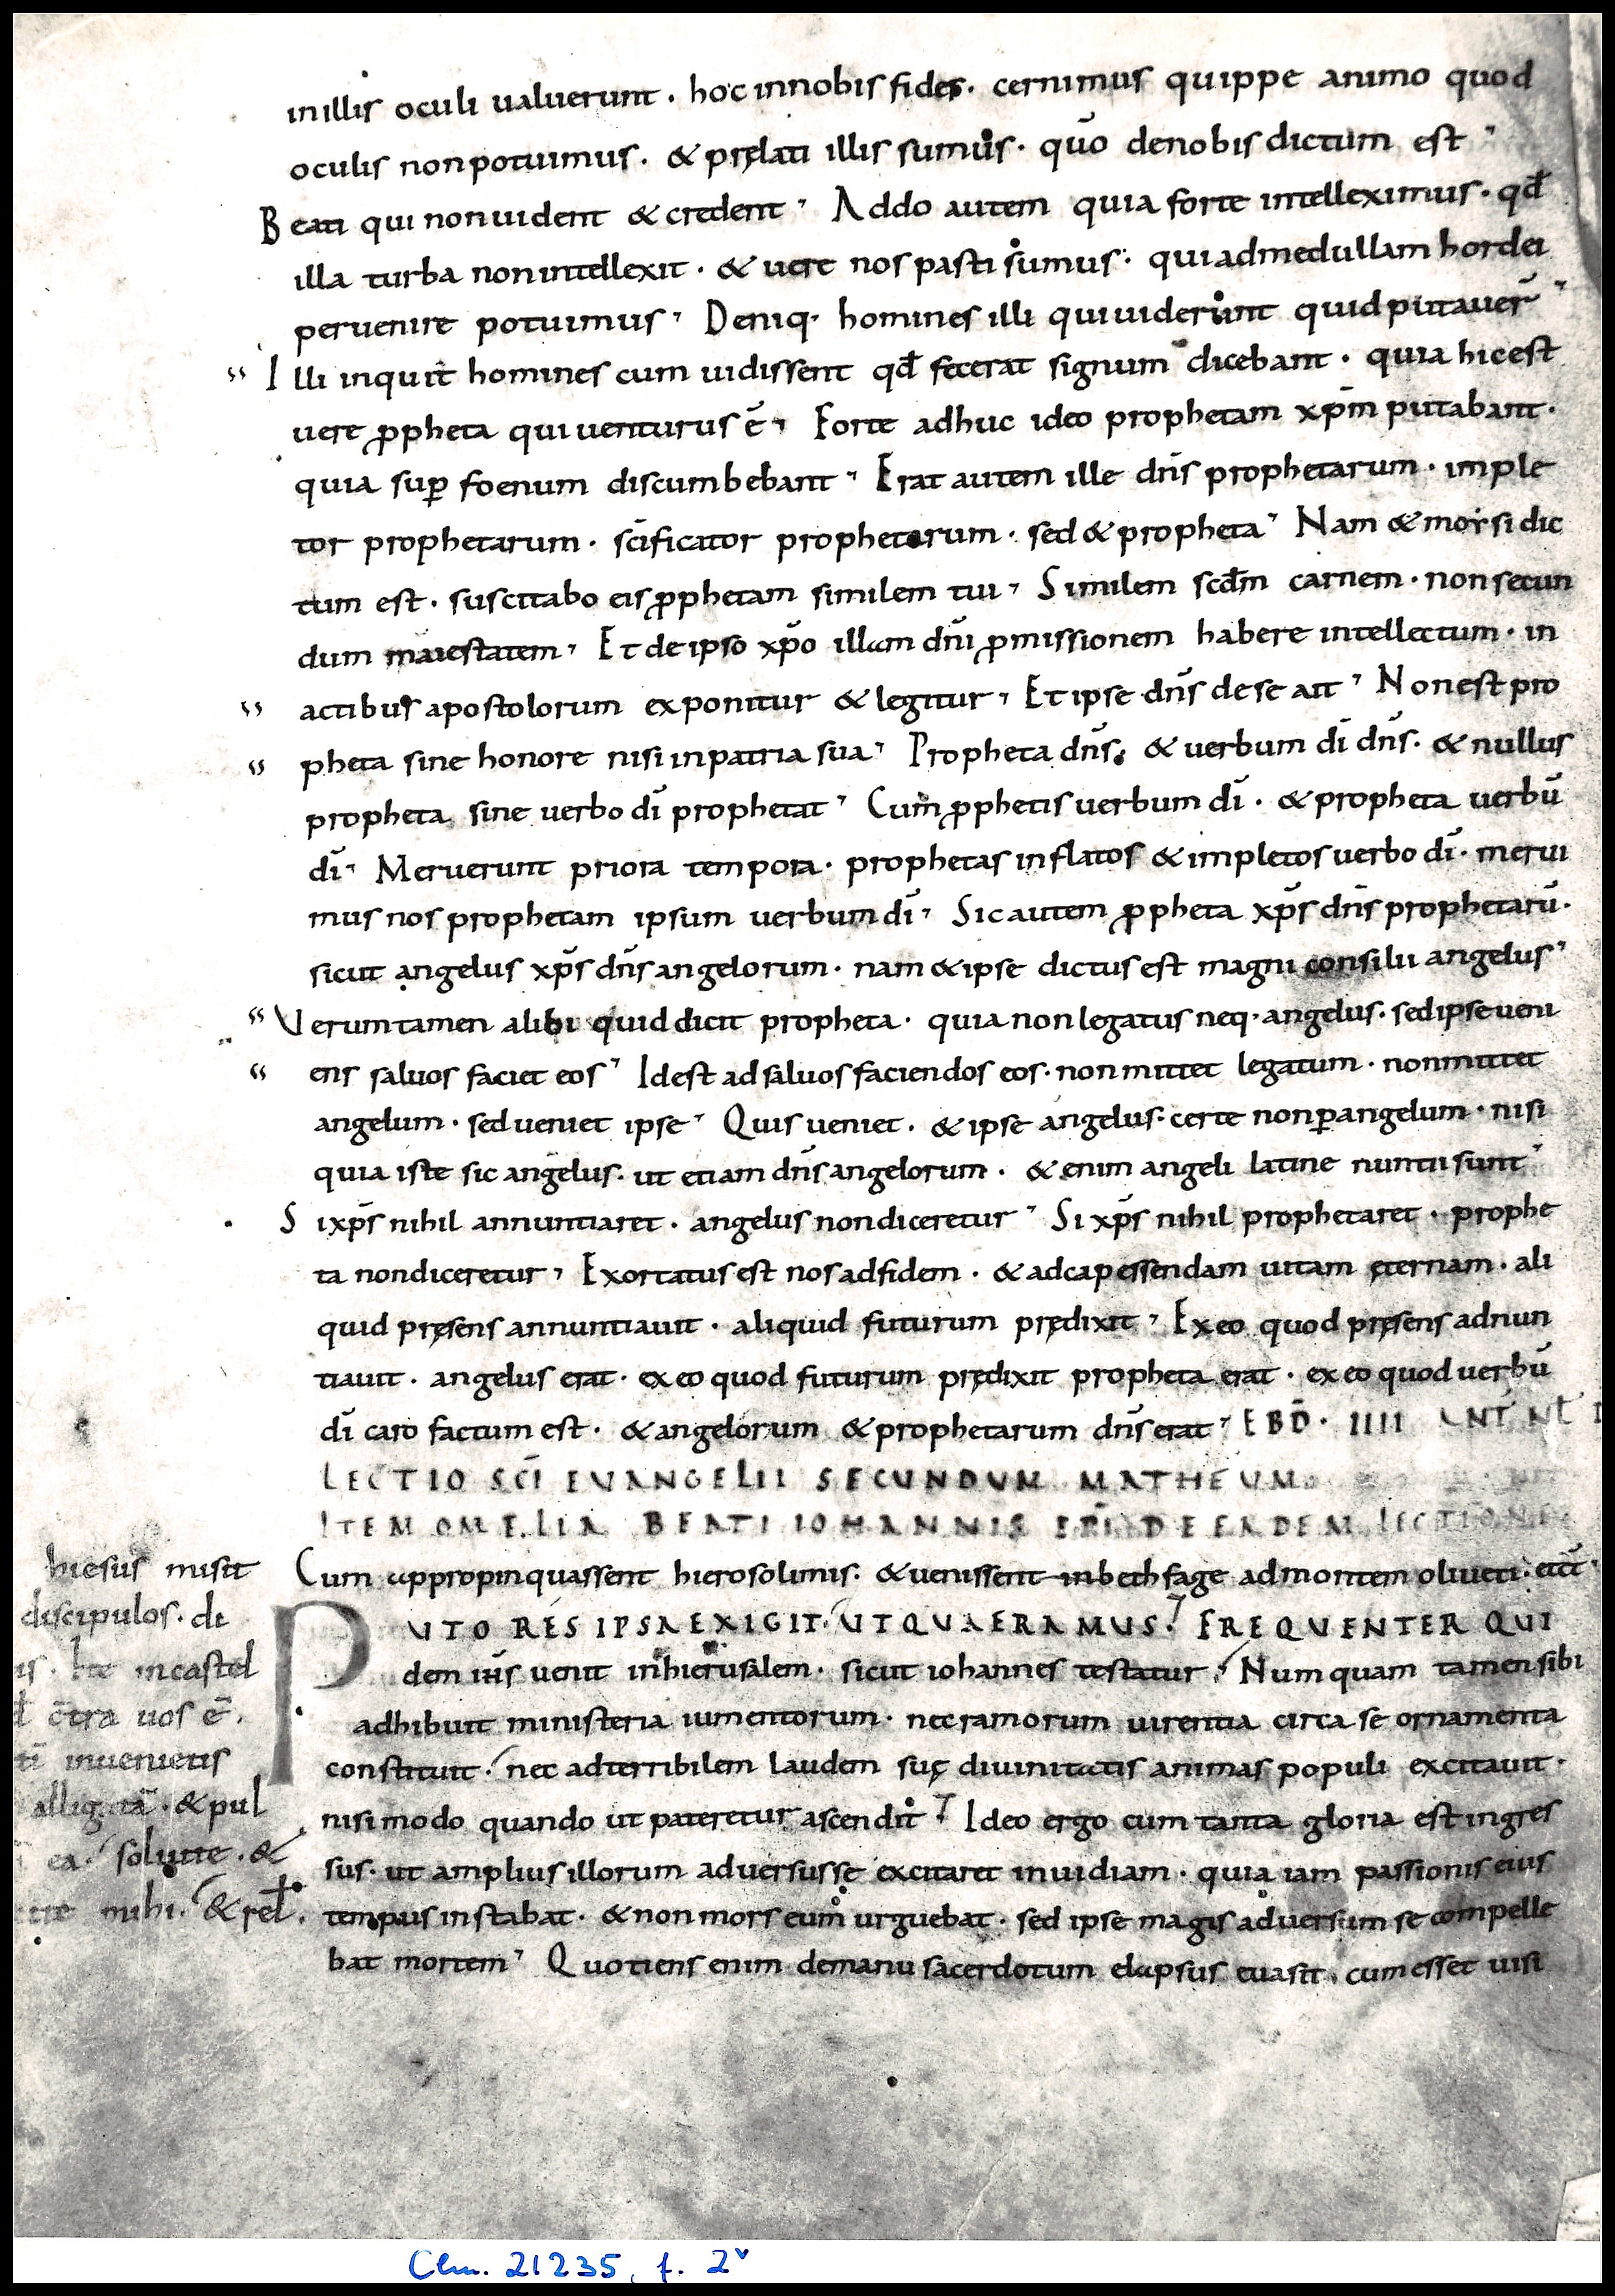 inillis oculi ualuerunt . hoc innobis fides . cernimus quippe animo quod
oculis nonpotuimus . & pręlati illis sumus . quō denobis dictum est
Beati qui nonuident & credent Addo autem quia forte intelleximus . qđ
illa turba nonintellexit . & uere nos pasti sumus . quiadmedullam hordei
peruenire potuimus Deniq· homines illi quiuiderunt quid putauer̄
Illi inquit homines cum uidissent qđ fecerat signum dicebant . quia hicest
uere ꝓpheta qui uenturus ē Forte adhuc ideo prophetam xp̄m putabant .
quia suꝑ foenum discumbebant Erat autem ille dn̄s prophetarum . imple
tor prophetarum . sc̄ificator prophetarum . sed & propheta Nam & moysi dic
tum est . suscitabo eis ꝓphetam similem tui Similem scđm carnem . non secun
dum maiestatem Et de ipso xp̄o illam dn̄i ꝓmissionem habere intellectum . in
actibus apostolorum exponitur & legitur Et ipse dn̄s de se ait Non est pro
pheta sine honore nisi inpatria sua Propheta dn̄s . & uerbum dī dn̄s . & nullus
propheta sine uerbo dī prophetat Cum ꝓphetis uerbum dī . & propheta uerbū
dī Meruerunt priora tempora . prophetas inflatos & impletos uerbo dī . merui
mus nos prophetam ipsum uerbum dī Sic autem ꝓpheta xp̄s dn̄s prophetarū .
sicut angelus xp̄s dn̄s angelorum . nam & ipse dictus est magni consilii angelus
Uerumtamen alibi quid dicit propheta . quia non legatus neq· angelus . sed ipse ueni
ens saluos faciet eos Idest ad saluos faciendos eos . non mittet legatum . non mittet
angelum . sed ueniet ipse Quis ueniet . & ipse angelus . certe non ꝑ angelum . nisi
quia iste sic angelus . ut etiam dn̄s angelorum . & enim angeli latine nuntii sunt
Si xp̄s nihil annuntiaret . angelus non diceretur Si xp̄s nihil prophetaret . prophe
ta non diceretur Exortatus est nos ad fidem . & ad capessendam uitam ęternam . ali
quid pręsens annuntiauit . aliquid futurum prędixit Ex eo quod pręsens adnun
tiauit . angelus erat . ex eo quod futurum prędixit propheta erat . ex eo quod uerbū
dī caro factum est . & angelorum & prophetarum dn̄s erat EBD̄ . IIII
LECTIO SC̄I EUANGELII SECUNDUM MATHEUM
ITEM OMELIA BEATI IOHANNIS EP̄I DE EADEM LECTIONE
Cum appropinquassent hierosolimis . & uenissent inbethfage ad montem oliueti .
PUTO RES IPSA EXIGIT . UT QUAERAMUS . FREQUENTER QUI
dem ih̄s uenit in hierusalem . sicut iohannes testatur . Numquam tamen sibi
adhibuit ministeria iumentorum . nec ramorum uirentia circa se ornamenta
constituit . nec ad terribilem laudem suę diuinitatis animas populi excitauit .
nisi modo quando ut pateretur ascendit Ideo ergo cum tanta gloria est ingres
sus . ut amplius illorum aduersus se excitaret inuidiam . quia iam passionis eius
tempus instabat . & non mors eum urguebat . sed ipse magis aduersum se compelle
bat mortem Quotiens enim demanu sacerdotum elapsus euasit . cum esset uisi
hiesus misit
discipulos . di
Ite in castel
c̄tra uos ē .
inuenietis
alligatā . & pul
ea . soluite . &
mihi . & rel̄ .
Clm. 21235, f. 2v